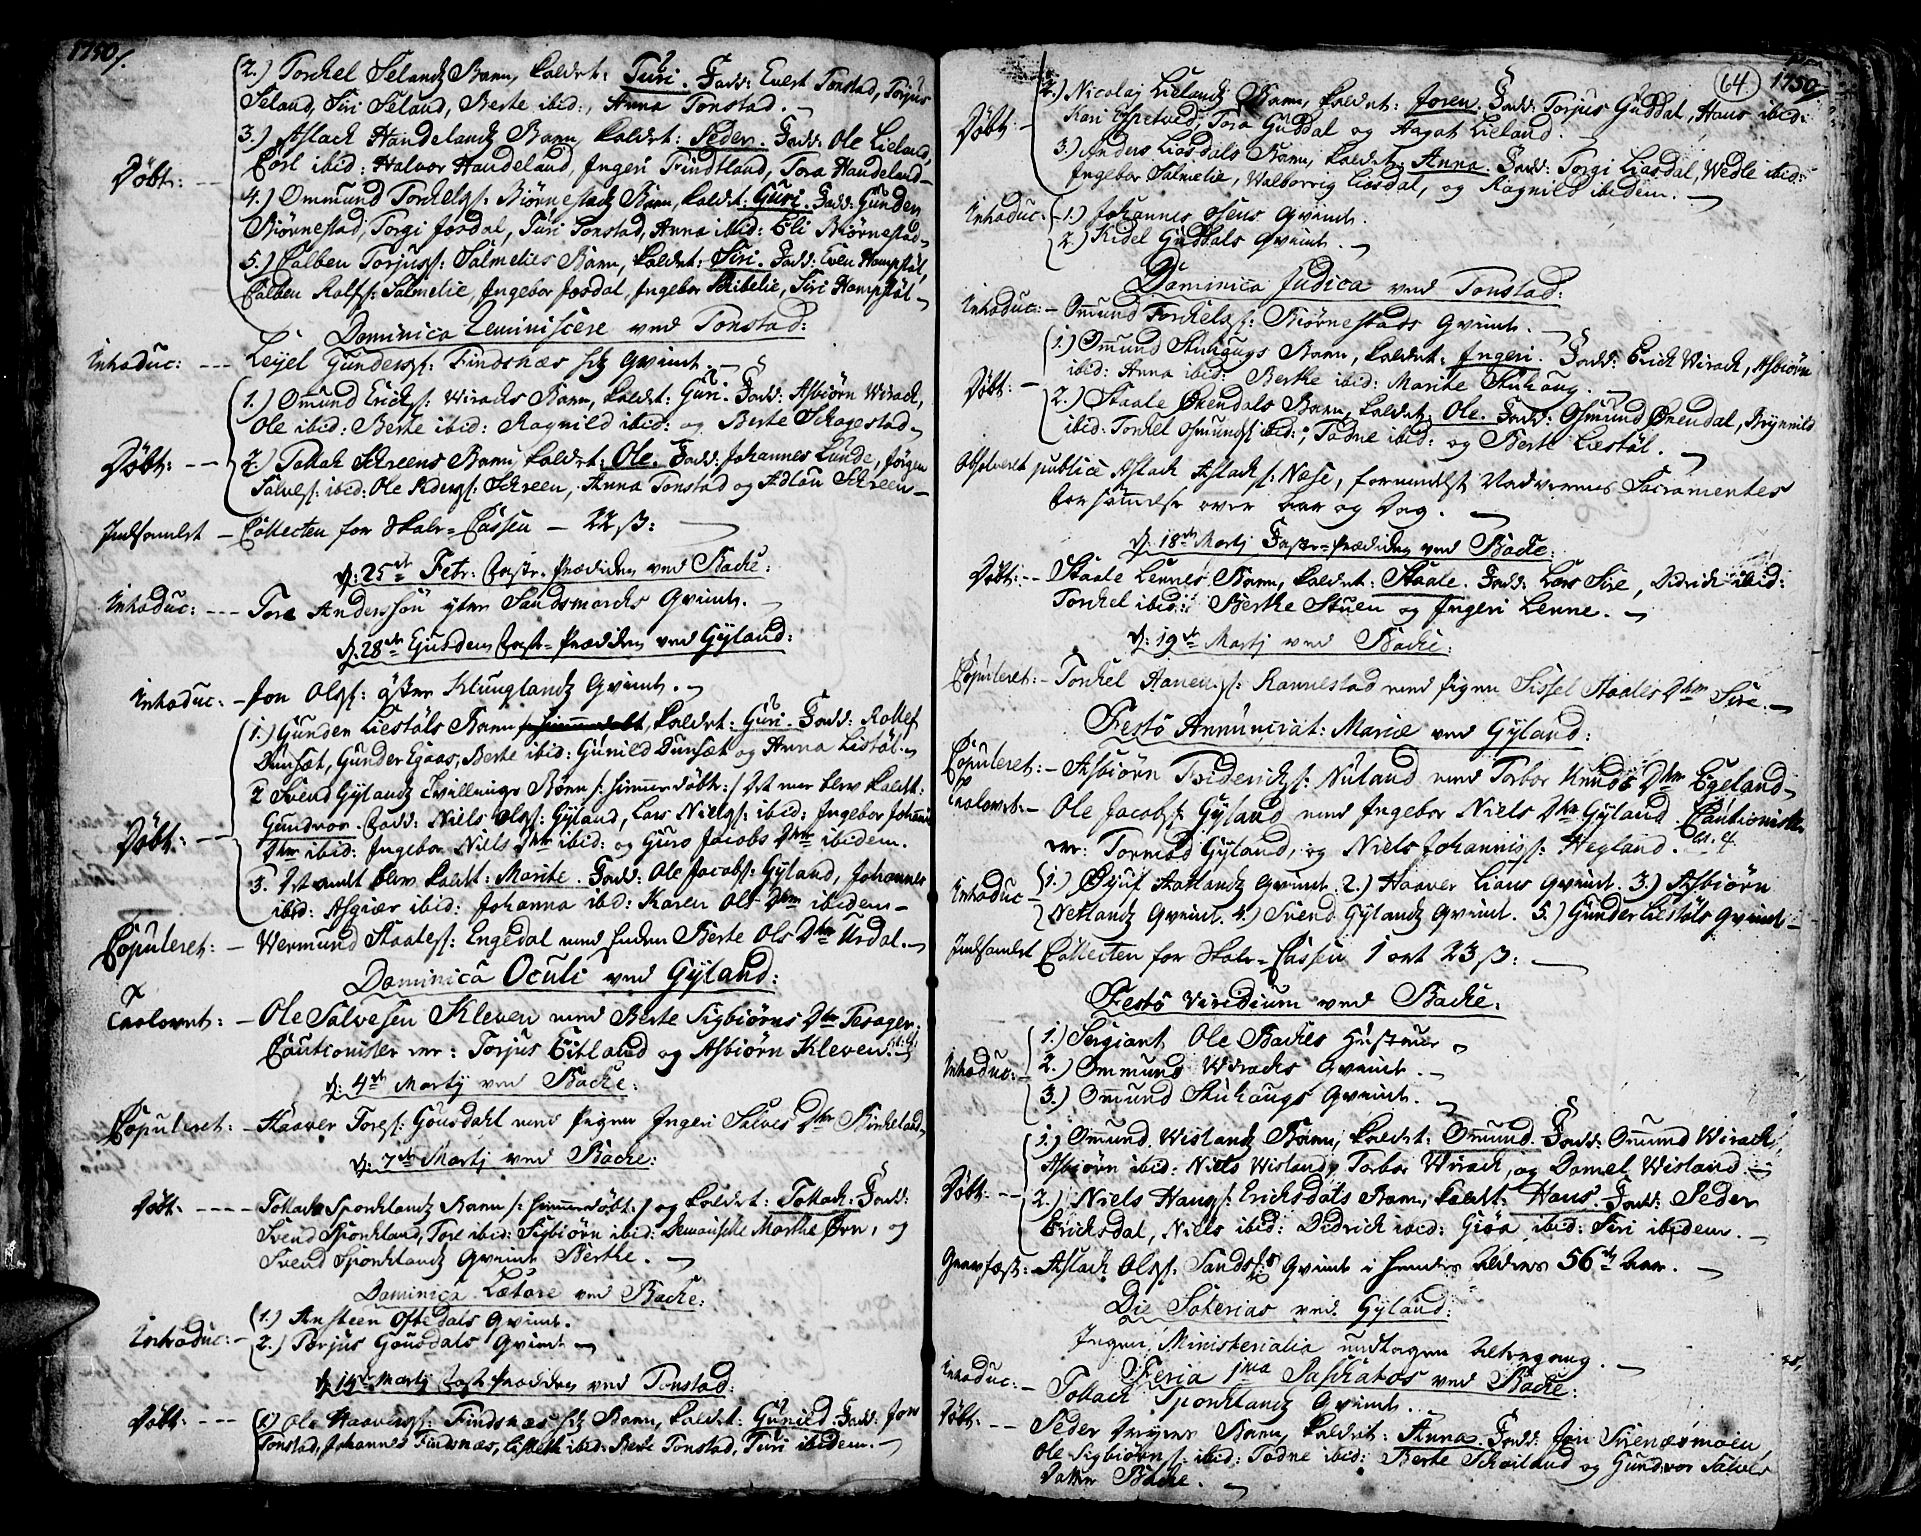 1750/.
2.) Torchel Selandz Barn, kaldet: Turi. Fadd: Evert Tonstad, Torjus
Seland, Siri Seland, Berte ibid:, Anna Tonstad.
3.) Aslach Handelandz Barn, kaldet: Peder. Fadd: Ole Lieland,
ibid: Halvor Handeland, Ingeri Findtland, Tora Handeland
Döbt:
4.) Ommund Torchels: Biörnestadz Barn, kaldet: Guri. Fadd: Gunder
Biörnestad, Torgi Josdal, Turi Tonstad, Anna ibid: Eli Biörnestad
5.) Salben Torjus: Salmelies Barn, kaldet: Siri. Fadd: Even Hompstöl,
Salben Rolfs: Salmelie, Ingebor Josdal, Ingebor Skibelie, Siri Hompstöl
Dominica Reminiscere ved Tonstad:
Introduc: Leyel Gunders: Findsnæs Qvinde.
1.) Omund Erichs: Wirachs Barn, kaldet: Guri. Fadd: Asbiörn Wirach,
Ole ibid: Berte ibid: Ragnild ibid: og Berte Skogestad
Döbt:
2.) Tollach Schreens Barn, kaldet: Ole. Fadd: Johannes Lunde, Jörgen
Salves: ibid: Ole Peders: Schreen, Anna Tonstad og Adlou Schreen
Indsamlet Collecten for Skole-Cassen 22 ß:
D: 25de Febr: Faste-Prædiken ved Backe:
Introduc: Tore Anderssön ytre Sandsmarchs Qvinde.
D: 28de Ejusdem Faste-Prædiken ved Gyland:
Introduc: Jon Ols: östre Klunglandz Qvinde.
1.) Gunder Liestöls Barn, kaldet: Guri. Fadd: Rollef
Dunsæt, Gunder Egaas, Berte ibid: Gunild Dunsæt og Anna Listöl.
2 Svend Gylandz Tvillinge Börn /: himmedöbt:/ Det ene blev kaldt:
Gundvor. Fadd: Niels Ols: Gyland, Lars Niels: ibid: Ingebor Johannis
Döbt:
Dtr ibid: Ingebor Niels Dtr ibid: og Guro Jacobs Dtr ibidem.
3. Det andet blev kaldt: Marite. Fadd: Ole Jacobs: Gyland, Johannes
ibid: Asgiær ibid: Johanna ibid: Karen Ols Dtr ibidem
Copuleret: Wermund Staales: Engedal med Berte Ols Dtr Urdal.
Dominica Oculi ved Gyland:
Trolovet: Ole Salvesen Kleven med Berte Sigbiörns Dtr Tesager.
Cautionister ere: Torjus Eitland og Asbiörn Kleven.
D: 4de Martij ved Backe:
Copuleret: Haaver Tores: Gousdahl med Pigen Ingeri Salves Dtr Birkeland
D: 7de Martij ved Backe:
Döbt: Tollach Sponlandz Barn /: himmedöbt:/ og kaldet: Tollach. Fadd:
Svend Sponland, Tore ibid: Sigbiörn ibid: Marthe Örn, og
Svend Sponlandz Qvinde Berthe.
Dominica Lætare ved Backe:
1.) Ansteen Oftedals Qvinde.
Introduc:
2.) Torjus Gousdals Qvinde
D: 14de Martij Faste-Prædiken ved Tonstad:
Döbt: 1.) Ole Haavers: Findsnæs Barn, kaldet: Gunild. Fadd: Jon
Tonstad, Johannes Findsnæs, Lisbeth ibid: Berte Tonstad, Turi ibidem.
64
1750
2.) Nicolaj Lielandz Barn, kaldet: Joren. Fadd: Torjus Guddal, Hans ibid:
Döbt:
Kari Espetved, Tora Guddal og Aagot Lieland.
3.) Anders Liosdals Barn, kaldet: Anna. Fadd: Torgi Liosdal, Wedle ibid:
Ingebor Salmelie, Walborrig Liosdal, og Ragnild ibidem.
Introduc: 1.) Johannes Osens Qvinde.
2.) Kidel Guddals Qvinde.
Dominica Judica ved Tonstad:
Introduc: Omund Torchels: Biörnestads Qvinde.
1.) Omund Stuhougs Barn, kaldet: Ingeri. Fadd: Erich Wirach, Asbiörn
ibid: Anna ibid: Berthe ibid: Marite Stuhoug.
Döbt:
2.) Staale Öxendals Barn, kaldet: Ole. Fadd: Osmund Öxendal, Brynnild
ibid: Torchel Osmunds: ibid:, Todne ibid: og Berte Liestöl.
Absolveret publicè Aslach Aslachs: Næse, formedelst Nadverens Sacramentes
Forsömmelse over Aar og Dag.
D: 18de Martij Faste-Prædiken ved Backe:
Döbt: Staale Lennes Barn, kaldet: Staale. Fadd: Lars Sire, Didrich ibid:
Torchel ibid: Berthe Stuen og Ingeri Lenne.
D: 19de Martij ved Backe:
Copuleret: Torchel Aanen: Rannestad med Pigen Sissel Staales Dtr Sire.
Festo Annunciat: Mariæ ved Gyland:
Copuleret: Asbiörn Friderichs: Nuland med Torbor Knuds Dtr Egeland
Trolovet: Ole Jacobs: Gyland med Ingebor Niels Dtr Gyland. Cautionister
ere: Tormod Gyland, og Niels Johannis: Hegland.
1.) Siuf Aatlandz Qvinde. 2.) Haaver Lians Qvinde. 3.) Asbiörn
Introduc
Netlandz Qvinde. 4.) Svend Gylandz Qvinde. 5.) Gunder Liestöls Qvinde
Indsamlet Collecten for Skole-Cassen 1 ort 23 ß:
Festo Viridium ved Backe:
1.) Sergiant Ole Backes Hustrue
Introduc: 2.) Ommund Wirachs Qvinde.
3.) Omund Stuhougs Qvinde.
1.) Omund Wislandz Barn, kaldet: Omund. Fadd: Omund Wirach,
Asbiörn ibid: Niels Wisland, Torbor Wirach, og Daniel Wisland.
Döbt:
2.) Niels Hans: Erichsdals Barn, kaldet: Hans. Fadd: Peder
Erichsdal, Niels ibid: Didrich ibid: Giöa ibid: Siri ibidem.
Gravfæst: Aslach Ols: Sands: Qvinde i hendes Alders 56de Aar.
Die Soterias ved Gyland:
Ingen Ministerialia undtagen Altergang.
Feria 1ma Paschatos ved Backe:
Introduc: Tollach Sponlandz Qvinde.
Döbt: Peder Dreyers Barn, kaldet: Anna. Fadd: Jon Svenæsmoen,
Ole Sigbiörns: ibid: Todne ibid: Berte Schailand og Gundvor Salves
Datter Backe.